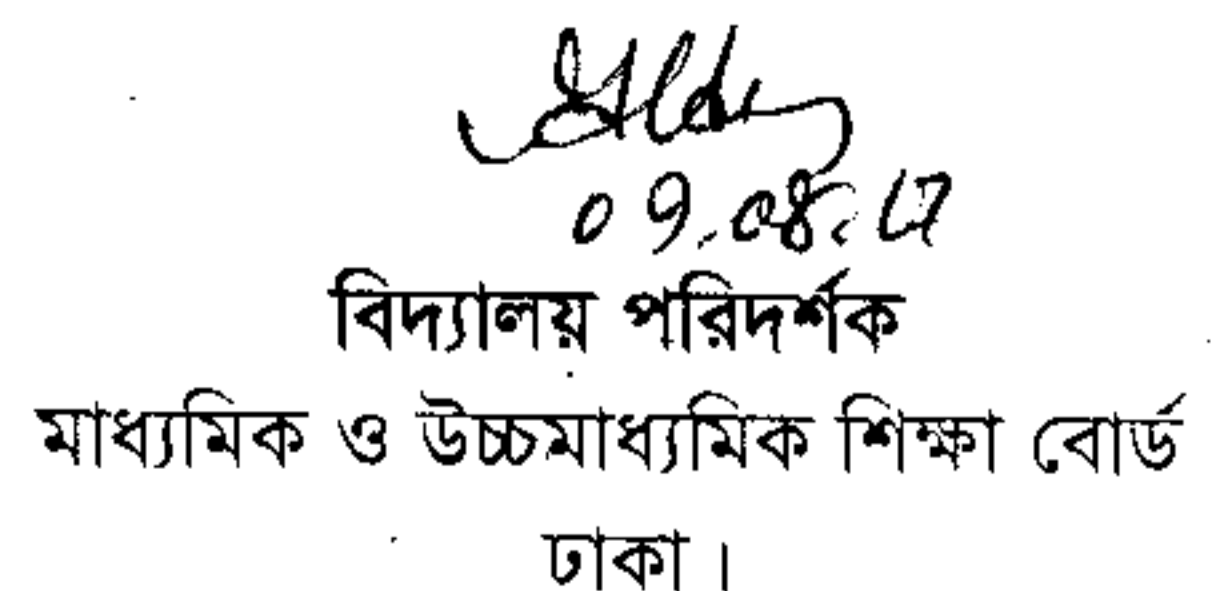 09.08.17
বিদ্যালয় পরিদর্শক
মাধ্যমিক ও উচ্চমাধ্যমিক শিক্ষা বোর্ড
ঢাকা।